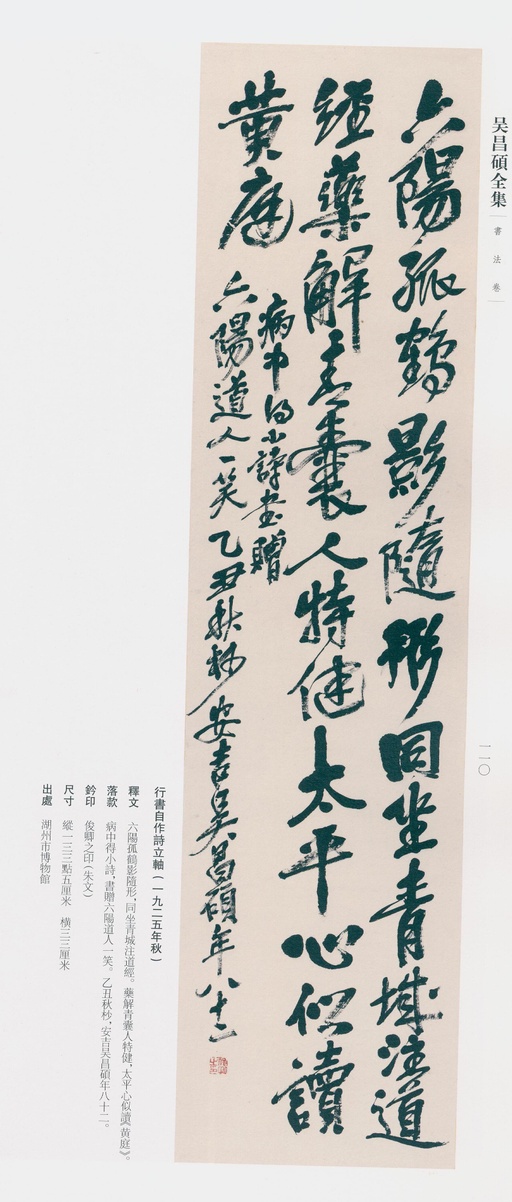 吴昌碩全集
書法卷
一一〇
六陽孤鶴影隨形同坐青城注道
經藥解青囊人特健太平心似讀
黃庭
病中得小詩書贈
六陽道人一笑乙丑秋杪安吉吴昌碩年八十二
行書自作詩立軸(一九二五年秋)
釋文 六陽孤鶴影隨形,同坐青城注道經。藥解青囊人特健,太平心似讀《黃庭》。
落款 病中得小詩,書贈六陽道人一笑。乙丑秋杪,安吉吴昌碩年八十二。
鈐印 俊卿之印(朱文)
尺寸 縱一三三點五厘米 橫三三厘米
出處 湖州市博物館